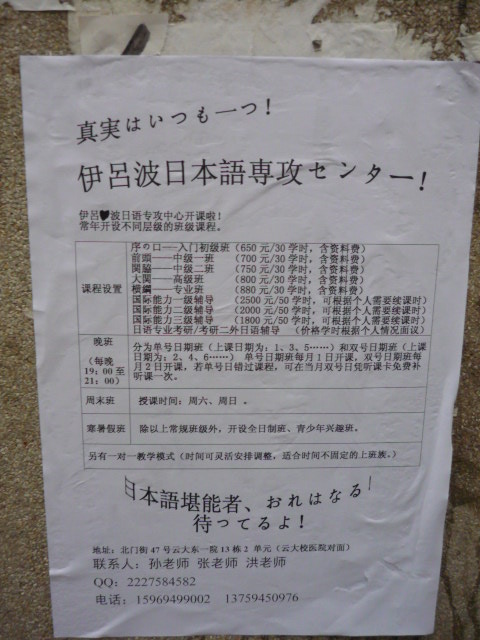 真実はいつも一つ！
伊呂波日本語専攻センター！
伊呂♥波日语专攻中心开课啦！
常年开设不同层级的班级课程。
课程设置
序の口——入门初级班（650 元/30 学时，含资料费）
前頭——中级一班 （700 元/30 学时，含资料费）
関脇——中级二班 （750 元/30 学时，含资料费）
大関——高级班 （800 元/30 学时，含资料费）
横綱——专业班 （880 元/30 学时，含资料费）
国际能力一级辅导 （2500 元/50 学时，可根据个人需要续课时）
国际能力二级辅导 （2000 元/50 学时，可根据个人需要续课时）
国际能力三级辅导 （1800 元/50 学时，可根据个人需要续课时）
日语专业考研/考研二外日语辅导 （价格学时根据个人情况面议）
晚班
（每晚
19：00 至
21：00）
分为单号日期班（上课日期为：1、3、5……）和双号日期班（上课
日期为：2、4、6……） 单号日期班每月 1 日开课，双号日期班每
月 2 日开课，若单号日错过课程，可在当月双号日凭听课卡免费补
听课一次。
周末班
授课时间：周六、周日 。
寒暑假班
除以上常规班级外，开设全日制班、青少年兴趣班。
另有一对一教学模式（时间可灵活安排调整，适合时间不固定的上班族。）
日本語堪能者、おれはなる
待ってるよ！
地址：北门街 47 号云大东一院 13 栋 2 单元（云大校医院对面）
联系人：孙老师 张老师 洪老师
QQ：2227584582
电话：15969499002 13759450976